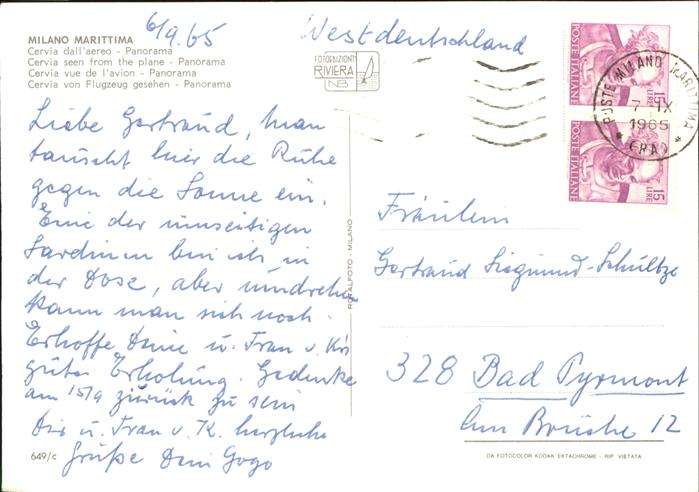 6/9.65
Westdeutschland
MILANO MARITTIMA
Cervia dall'aereo - Panorama
Cervia seen from the plane - Panorama
Cervia vue de l'avion - Panorama
Cervia von Flugzeug gesehen - Panorama
FOTOEDIZIONI
RIVIERA
NB
POSTE ITALIANE
15
LIRE
POSTE ITALIANE
15
LIRE
POSTE MILANO MARITTIMA
7 - IX
1965
Liebe Gertraud, man
tauscht hier die Ruhe
gegen die Sonne ein.
Eine der umseitigen
Sardinen bin ich in
der Dose, aber umdrehen
kann man sich noch.
Erhoffe Deine u. Frau v.
gute Erholung. Gedenke
am 15/9 zurück zu sein
Dir u. Frau v. K. herzliche
Grüße Dein Gogo
649/c
ROTALFOTO - MILANO
Fräulein
Gertraud Siegmund-Schultze
328 Bad Pyrmont
Am Bruche 12
DA FOTOCOLOR KODAK EKTACHROME - RIP. VIETATA